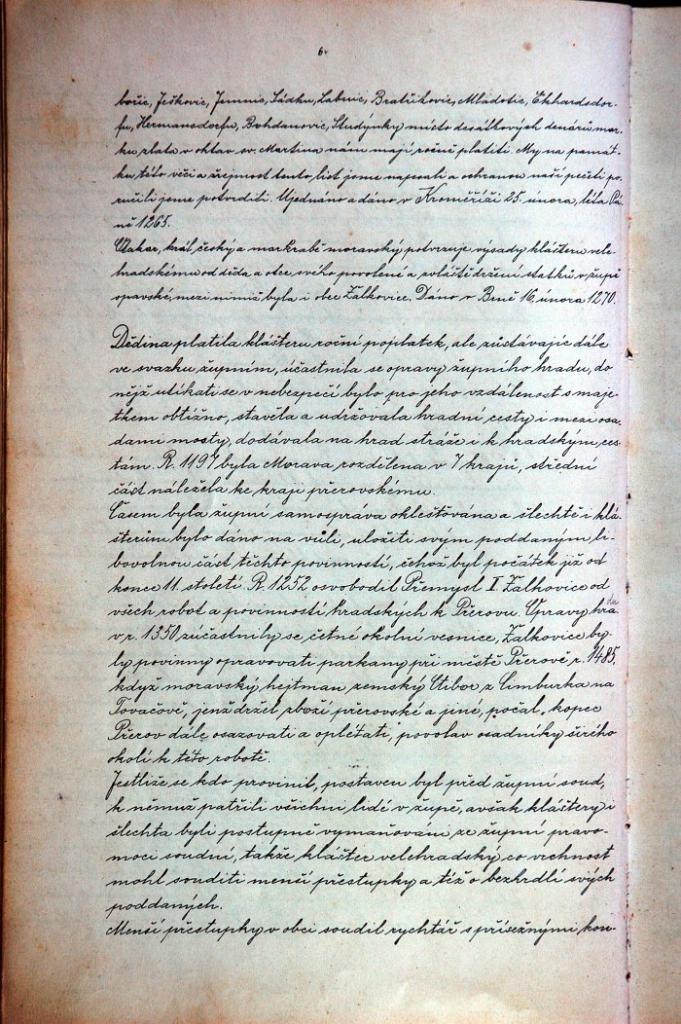 6.
bořic, Ješkovic, Jemnic, Sádku, Labnic, Bratříkovic, Mladotic, Ekhardsdor-
fu, Hermansdorfu, Bohdanovic, Studýnky místo desátkových denárů mar-
ku zlata v oktav sv. Martina nám mají ročně platiti. My na památ-
ku této věci a zřejmost tento list jsme napsati a ochranou naší pečeti po-
ručili jsme potvrditi. Ujednáno a dáno v Kroměříži 25. února, léta Pá-
ně 1265.
Otakar, král český a markrabě moravský potvrzuje výsady klášteru vele-
hradskému od děda a otce svého povolené a zvláště držení statků v župě
opavské, mezi nimiž byla i obec Žalkovice. Dáno v Brně 16. února 1270.
Dědina platila klášteru roční poplatek, ale zůstávajíc dále
ve svazku župním, účastnila se opravy župního hradu, do
nějž utíkati se v nebezpečí bylo pro jeho vzdálenost s maje-
tkem obtížno, stavěla a udržovala hradní cesty i mezi osa-
dami mosty, dodávala na hrad stráže i k hradským ces-
tám. R. 1197 byla Morava rozdělena v 7 krajů, střední
část náležela ke kraji přerovskému.
Časem byla župní samospráva oklešťována a šlechtě i klá-
šterům bylo dáno na vůli, uložiti svým poddaným li-
bovolnou část těchto povinností, čehož byl počátek již od
konce 11. století. R. 1252 osvobodil Přemysl I. Žalkovice od
všech robot a povinností hradských k Přerovu. Opravy hradu
v r. 1350 zúčastnily se četné okolní vesnice, Žalkovice by-
ly povinny opravovati parkany při městě Přerově r. 1485,
když moravský hejtman zemský Ctibor z Cimburka na
Tovačově, jenž držel zboží přerovské a jiné, počal „kopec
Přerov dále osazovati a oplétati, povolav osadníky širého
okolí k této robotě.
Jestliže se kdo provinil, postaven byl před župní soud,
k němuž patřili všichni lidé v župě, avšak kláštery i
šlechta byli postupně vymaňováni ze župní pravo-
moci soudní, takže klášter velehradský co vrchnost
mohl souditi menší přestupky a též o bezhrdlí svých
poddaných.
Menší přestupky v obci soudil rychtář s přísežnými kon-